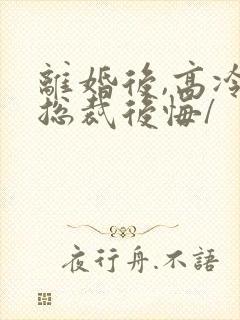 離婚後,高冷
總裁後悔/
夜行舟.不語